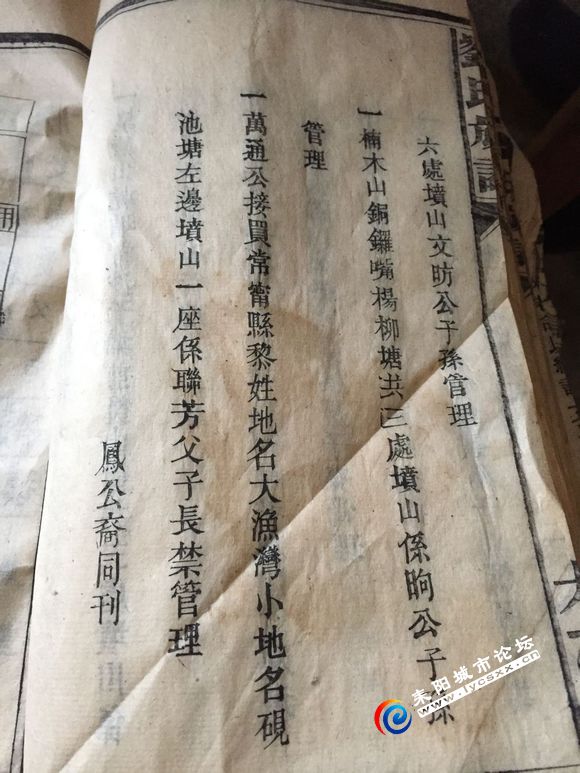 六處墳山文昉公子孫管理
一楠木山銅鑼嘴楊柳塘共三處墳山係昫公子孫
管理
一萬通公接買常甯縣黎姓地名大漁灣小地名硯
池塘左邊墳山一座係聯芳父子長禁管理
鳳公裔同刊
劉氏族譜
耒阳城市论坛
www.lycsxx.cn